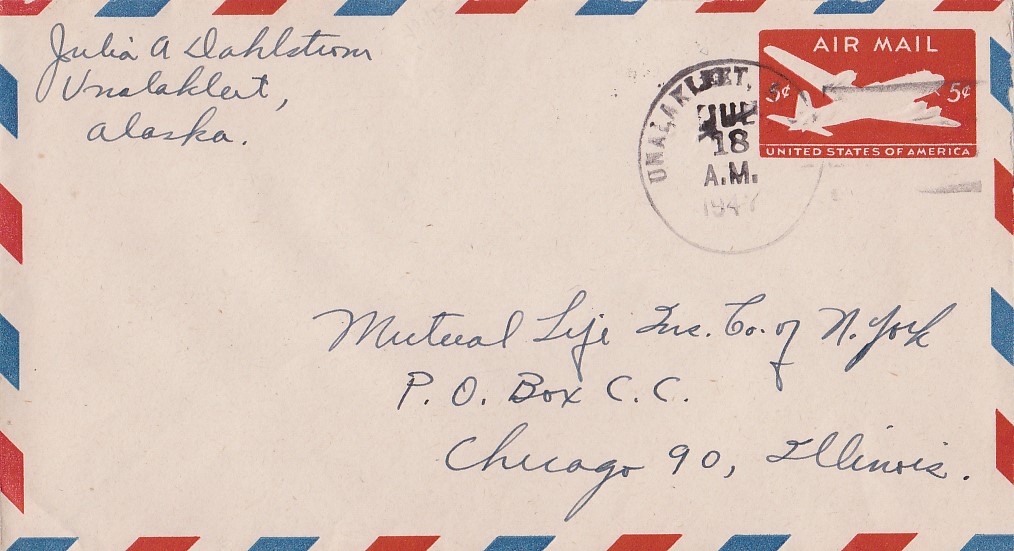 Julia A Dahlstrom
Unalakleet,
Alaska.
AIR MAIL
5¢ 5¢
UNITED STATES OF AMERICA
UNALAKLEET,
18
A.M.
1947
Mutual Life Ins. Co. of N. York
P. O. Box C. C.
Chicago 90, Illinois.